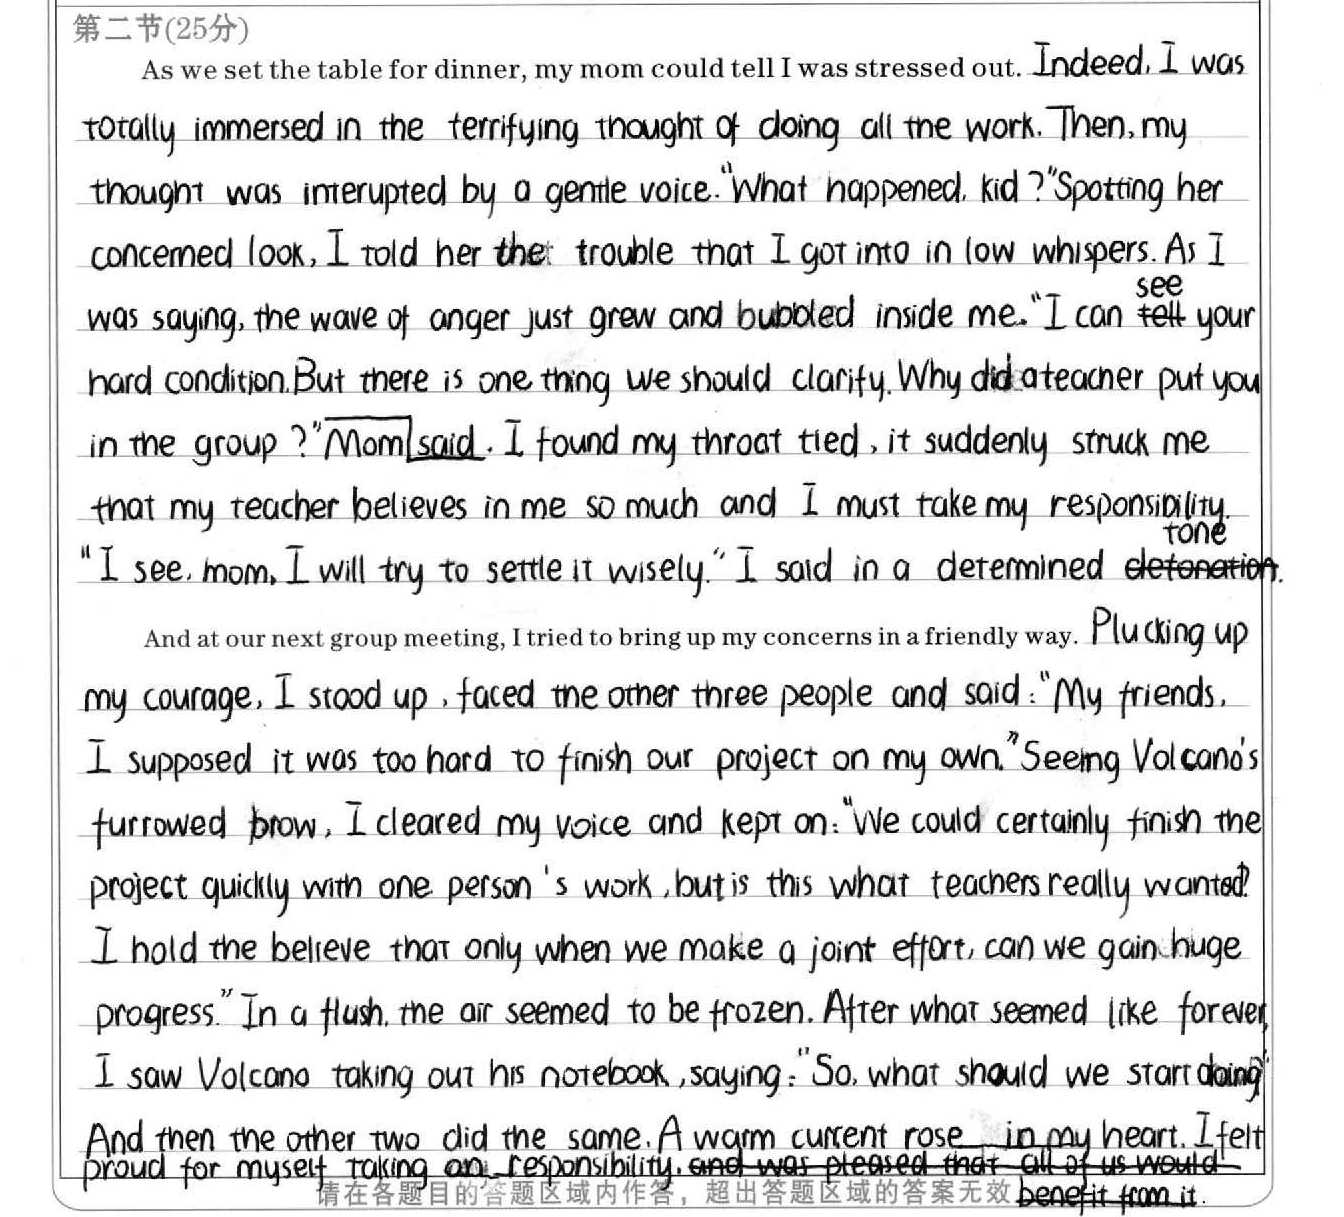 第二节(25分)
As we set the table for dinner, my mom could tell I was stressed out. Indeed, I was
totally immersed in the terrifying thought of doing all the work. Then, my
thought was interupted by a gentle voice. "What happened, kid?" Spotting her
concerned look, I told her the trouble that I got into in low whispers. As I
was saying, the wave of anger just grew and bubbled inside me. "I can tell see your
hard condition. But there is one thing we should clarify. Why did a teacher put you
in the group?" Mom said. I found my throat tied, it suddenly struck me
that my teacher believes in me so much and I must take my responsibility.
"I see, mom, I will try to settle it wisely." I said in a determined detonation tone.
And at our next group meeting, I tried to bring up my concerns in a friendly way. Plucking up
my courage, I stood up, faced the other three people and said: "My friends,
I supposed it was too hard to finish our project on my own." Seeing Volcano's
furrowed brow, I cleared my voice and kept on: "We could certainly finish the
project quickly with one person's work, but is this what teachers really wanted?
I hold the believe that only when we make a joint effort, can we gain huge
progress." In a flush, the air seemed to be frozen. After what seemed like forever,
I saw Volcano taking out his notebook, saying: "So, what should we start doing?"
And then the other two did the same. A warm current rose in my heart. I felt
proud for myself taking on responsibility. and was pleased that all of us would
benefit from it.
请在各题目的答题区域内作答，超出答题区域的答案无效